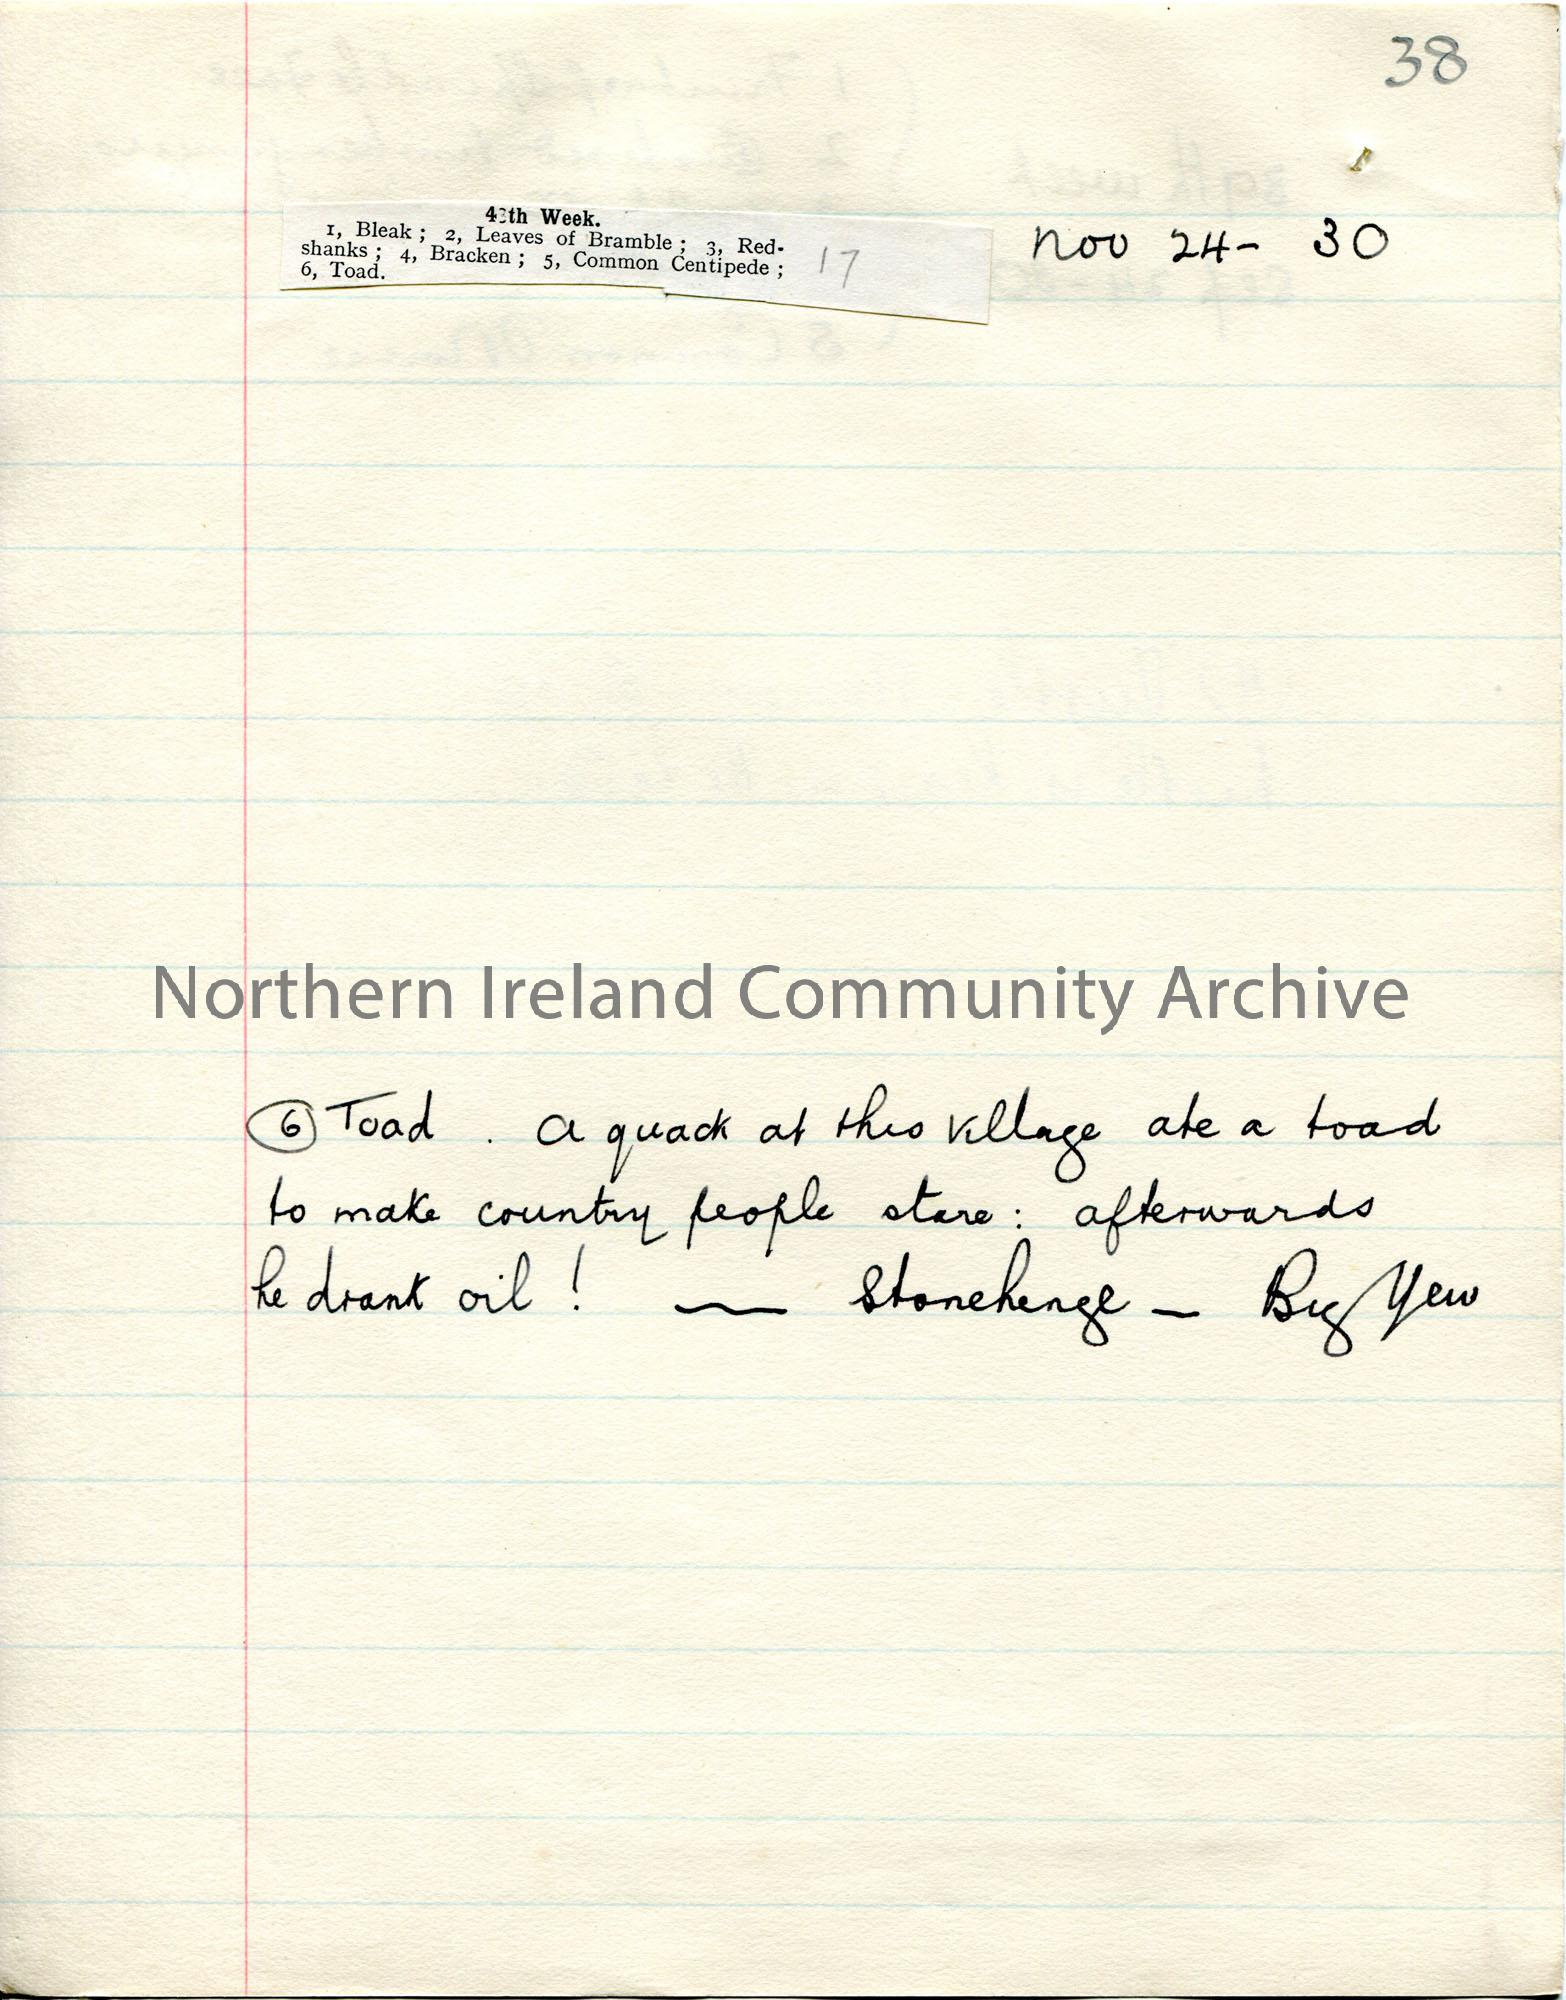 38
48th Week.
1, Bleak; 2, Leaves of Bramble; 3, Red-
shanks; 4, Bracken; 5, Common Centipede;
6, Toad.
17
Nov 24- 30
Northern Ireland Community Archive
6 Toad. A quack at this village ate a toad
to make country people stare: afterwards
he drank oil! — Stonehenge — Big Yew